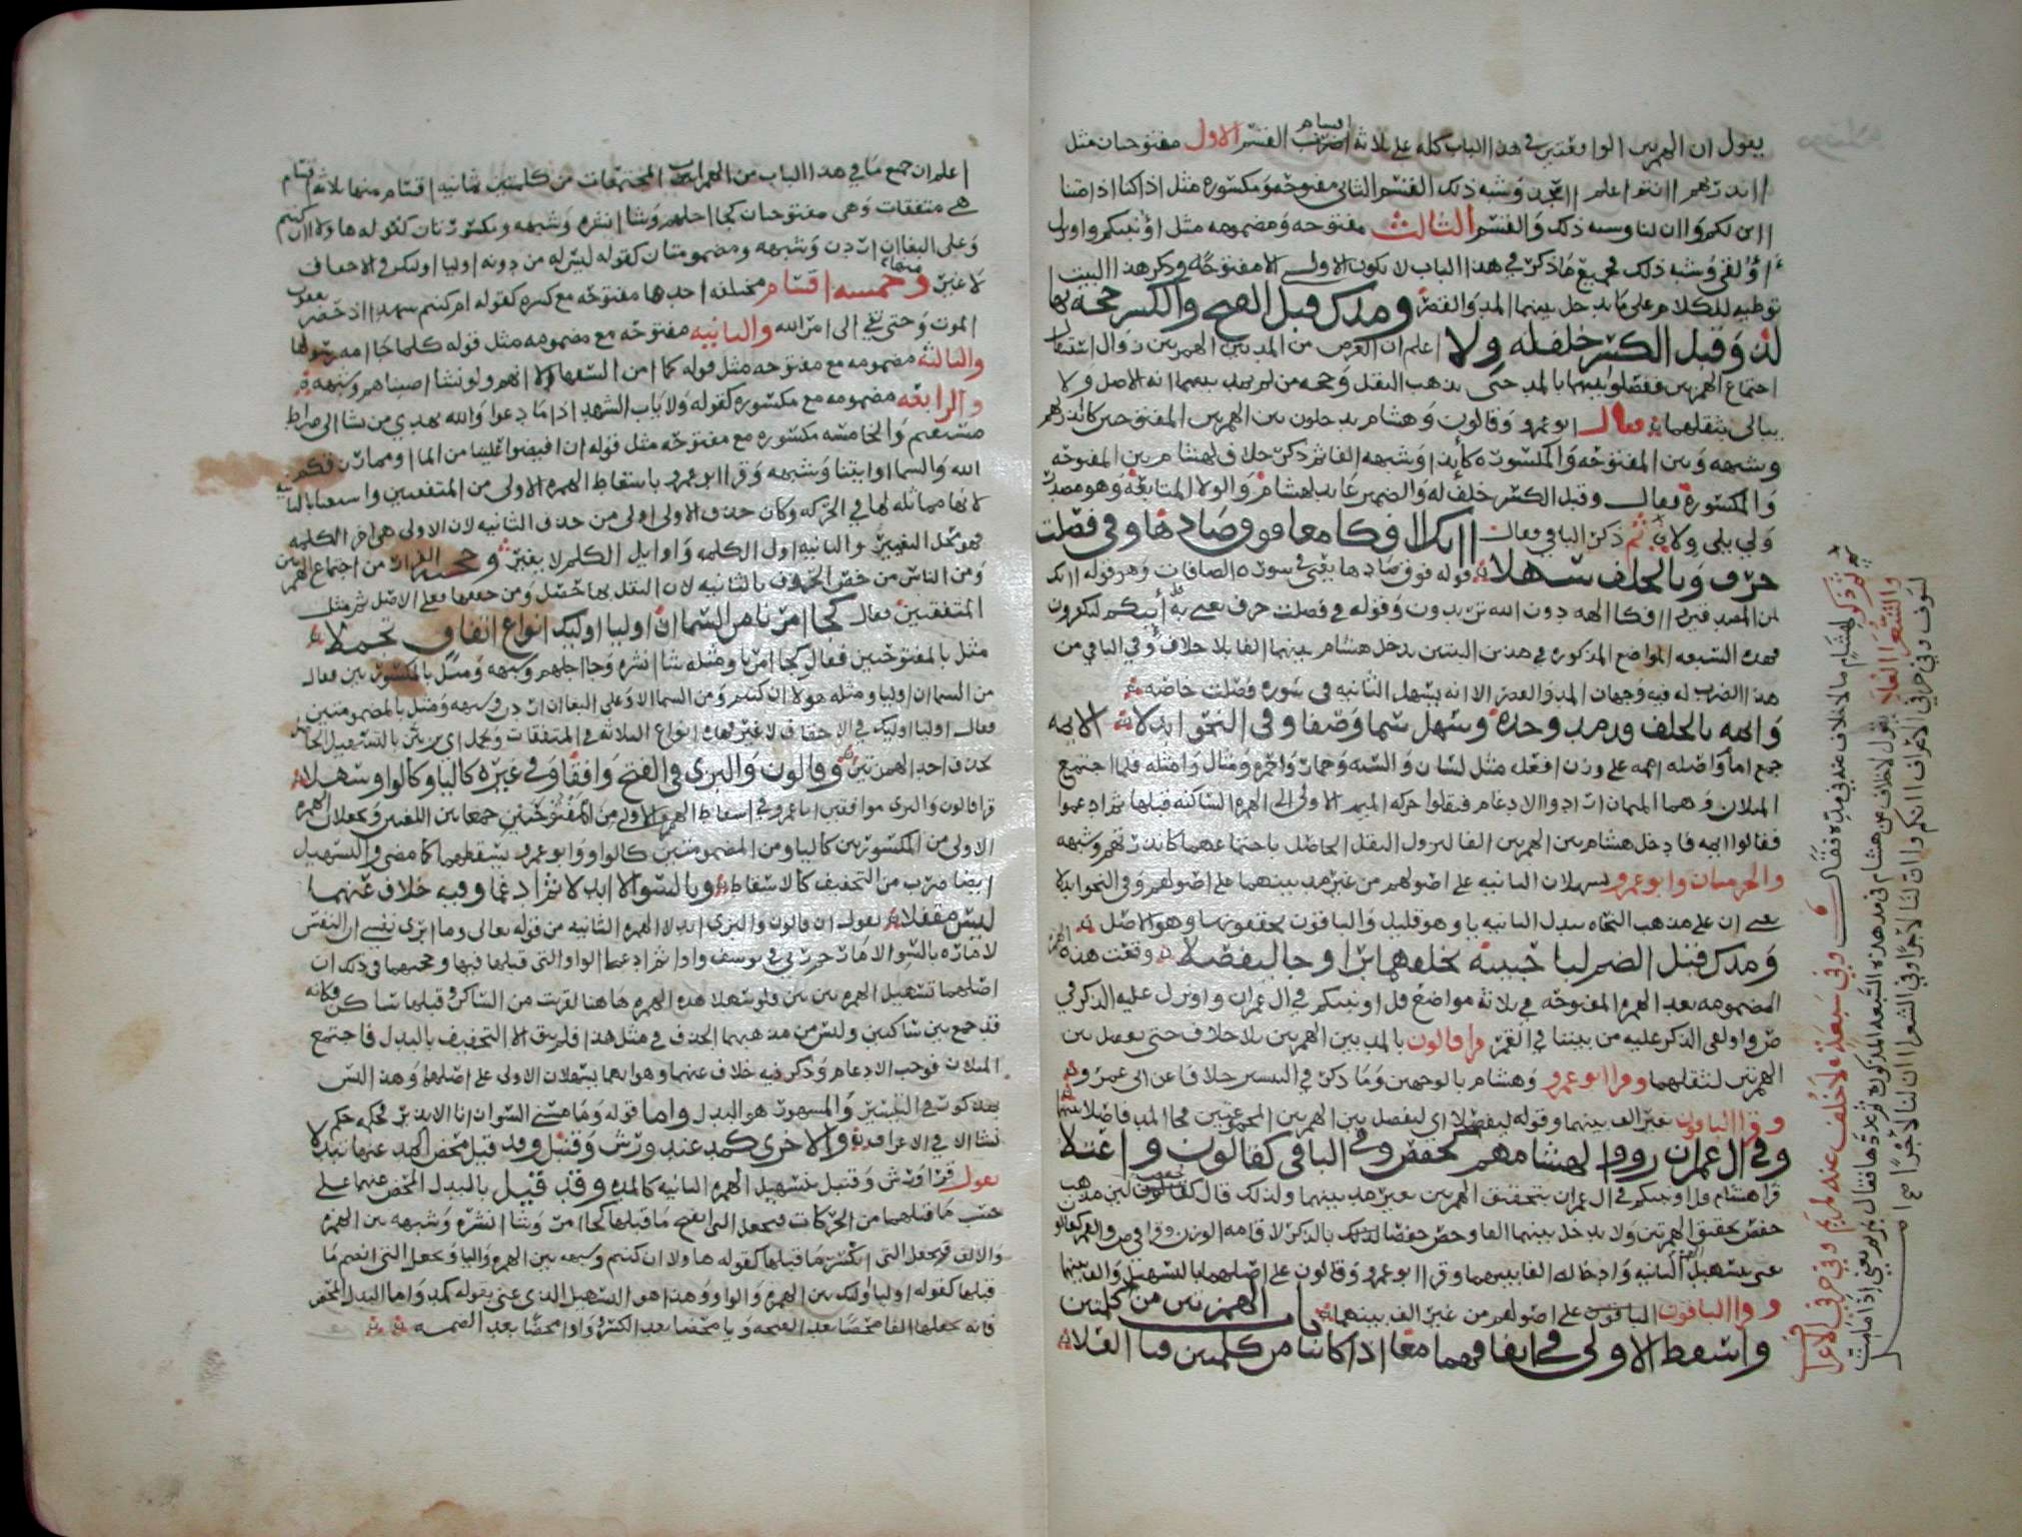 يقول ان الهمزتين الواقعتين في هذا الباب كله على ثلاثة اضرب القسم الاول مفتوحتان مثل
اقسام
اانذرتهم اانتم اعلم االد وشبه ذلك القسم الثاني مفتوحه ومكسوره مثل اذا كنا اذا متنا
اان لكم واان لنا وشبه ذلك والقسم الثالث مفتوحه ومضمومه مثل اؤنبيكم واونزل
اؤلقي وشبه ذلك فجميع ما ذكر في هذا الباب لا تكون الاولى الا مفتوحه وذكر هذا البيت
توطيه للكلام على ما يدخل بينهما المد والقصر ومدك قبل الفتح والكسر حجة بها
لذ وقبل الكسر خلف له ولا اعلم ان الغرض من المد بين الهمزتين زوال استثقال
اجتماع الهمزتين ففصلوا بينهما بالمد حتى يذهب الثقل وحجه من لم يمد بينهما انه الاصل ولا
يبالي بثقلهما فقال ابو عمرو وقالون وهشام يدخلون بين الهمزتين المفتوحتين كاانذرتهم
وشبهه وبين المفتوحه والمكسوره كأيذا وشبهه الفا ثم ذكر خلاف لهشام بين المفتوحه
والمكسورة فقال وقبل الكسر خلف له والضمير عايد لهشام والولا المتابعة وهو مصدر
ولي يلي ولاء ثم ذكر الباقي فقال اانك اافكا معا فوق صادها وفي فصلت
حرف وبالخلف سهلا قوله فوق صادها يعني في سورة الصافات وهو قوله اانك
لمن المصدقين اافكا الهه دون الله تريدون وقوله في فصلت حرف يعني به أينكم لتكفرون
فهذه السبعه المواضع المذكوره في هذين البيتين يدخل هشام بينهما الفا بلا خلاف وفي الباقي من
هذا الضرب له فيه وجهان المد والقصر الا انه يسهل الثانيه في سوره فصلت خاصه
وائمه بالخلف قد مد وحده وسهل سما وصفا وفي النحو ابدلا الايمه
جمع امام واصله اممه على وزن افعله مثل لسان والسنه وحمار واحمره ومثال وامثله فلما اجتمع
المثلان وهما الميمان ارادوا الادغام فنقلوا حركه الميم الاولى الى الهمزه الساكنه قبلها ثم ادغموا
فقالوا ايمه فادخل هشام بين الهمزتين الفا ليزول الثقل الحاصل باجتماعهما كانذرتهم وشبهه
والحرميان وابو عمرو يسهلان الثانيه على اصولهم من غير مد بينهما وفي النحو ابدلا
يعني ان على مذهب النحاه تبدل الثانيه يا وهو قليل والباقون يحققونها وهو الاصل
ومدك قبل الضم لبا حبيبه بخلفهما برا وجا ليفصلا وقعت هذه
المضمومه بعد الهمزه المفتوحه في ثلاثة مواضع قل اونبيكم في ال عمران واونزل عليه الذكر في
ص واولقي الذكر عليه من بيننا في القمر قرا قالون بالمد بين الهمزتين بلا خلاف حتى يفصل بين
الهمزتين لثقلهما وقرا ابو عمرو وهشام بالوجهين وما ذكر في التيسير خلافا عن ابي عمرو
وقرا الباقون بغير الف بينهما وقوله ليفصلا اي ليفصل بين الهمزتين المجموعتين فجا المد فاصلا
وفي ال عمران رووا لهشامهم كحفص وفي الباقي كقالون واعتلا
قرا هشام قل اونبيكم في ال عمران بتحقيق الهمزتين بغير مد بينهما ولذلك قال كحفص لان مذهب
حفص تحقيق الهمزتين ولا يدخل بينهما الفا وخص حفصا بالذكر لاقامه الوزن وقرا في ص والقمر كقالون
عنى بتسهيل الثانيه وادخاله الفا بينهما وقرا ابو عمرو وقالون على اصلهما بالتسهيل والف بينهما
وقرا الباقون على اصولهم من غير الف بينهما باب الهمزتين من كلمتين
واسقط الاولى في اتفاقهما معا اذا كانتا من كلمتين فتى العلا
وفي سبعة لا خلف عنه بمريم وفي حرفي الاعراف
والشعرا العلا
ثم ذكر لهشام ما لا خلاف عنه في مده فقال
يقول لا خلاف عن هشام في مد هذه السبعه المذكوره ثم عدها فقال بمريم يعني ااذا ما مت
لسوف وفي حرفي الاعراف اانكم واان لنا لاجرا وفي الشعرا اان لنا لاجرا
اعلم ان جميع ما في هذا الباب من الهمزات المجتمعات من كلمتين ثمانيه اقسام منها ثلاثه اقسام
هي متفقات وهي مفتوحتان كجا اجلهم وشا انشره وشبهه ومكسورتان كقوله هاولا ان كنتم
وعلى البغا ان اردن وشبهه ومضمومتان كقوله ليس له من دونه اوليا اوليك في الاحقاف
لا غير وخمسه اقسام مختلفه احدها مفتوحه مع كسره كقوله ام كنتم شهدا اذ حضر يعقوب
الموت وحتى تفي الى امر الله والثانيه مفتوحه مع مضمومه مثل قوله كلما جا امه رسولها
والثالثه مضمومه مع مفتوحه مثل قوله كما امن السفها الا انهم ولو نشا اصبناهم وشبهه
والرابعه مضمومه مع مكسوره كقوله ولا ياب الشهدا اذا ما دعوا والله يهدي من يشا الى صراط
مستقيم والخامسه مكسوره مع مفتوحه مثل قوله ان افيضوا علينا من الما او مما رزقكم
الله والسما او ايتنا وشبهه وقرا ابو عمرو باسقاط الهمزه الاولى من المتفقتين واستغنا بالثانيه
لانها مماثله لها في الحركه وكان حذف الاولى اولى من حذف الثانيه لان الاولى هي اخر الكلمه
فهو محل التغيير والثانيه اول الكلمه واوايل الكلم لا يغير وحجته الفرار من اجتماع الهمزتين
ومن الناس من خص الحذف بالثانيه لان الثقل بها حصل ومن حققها فعلى الاصل ثم مثل
المتفقتين فقال كجا امرنا من السما ان اوليا اوليك انواع اتفاق تجملا
مثل بالمفتوحتين فقال كجا امرنا ومثله شا انشره وجا اجلهم وشبهه ومثل بالمكسورتين فقال
من السما ان اوليا ومثله هولا ان كنتم ومن السما الا وعلى البغا ان اردن وشبهه ومثل بالمضمومتين
فقال اوليا اوليك في الاحقاف لا غير فهذه انواع الثلاثه في المتفقات وتجمل اي تزين بالتسهيل
بحذف احد الهمزتين وقالون والبزي في الفتح وافقا وفي غيره كاليا وكالواو سهلا
قرا قالون والبزي موافقين ابا عمرو في اسقاط الهمزه الاولى من المفتوحتين جمعا بين اللغتين ويجعلان الهمزه
الاولى من المكسورتين كاليا ومن المضمومتين كالواو وابو عمرو يسقطهما كما مضى والتسهيل
ايضا ضرب من التخفيف كالاسقاط وبالسو الا ابدلا ثم ادغما وفيه خلاف عنهما
ليس مقفلا يقول ان قالون والبزي ابدلا الهمزه الثانيه من قوله تعالى وما ابري نفسي ان النفس
لاماره بالسو الا ما رحم ربي في يوسف واوا ثم ادغما الواو التي قبلها فيها وحجتهما في ذلك ان
اصلهما تسهيل الهمزه بين بين فلو سهلا هذه الهمزه هاهنا لقربت من الساكن وقبلها ساكن فكانه
قد جمع بين ساكنين وليس من مذهبهما الحذف في مثل هذا فلم يبق الا التخفيف بالبدل فاجتمع
المثلان فوجب الادغام وذكر فيه خلاف عنهما وهو انهما يسهلان الاولى على اصلهما وهذا ليس
بمذكور في التيسير والمشهور هو البدل واما قوله وما مسني السو ان انا الا نذير فحكمه حكم
نشا الا في الاعراف والاخرى كمد عند ورش وقنبل وقد قيل محض المد عنها تبدلا
يقول قرا ورش وقنبل بتسهيل الهمزه الثانيه كالمده وقد قيل بالبدل المحض عنهما على
حسب ما قبلهما من الحركات فيجعل التي انفتح ما قبلها كجا امرنا وشا انشره وشبهه بين الهمزه
والالف ويجعل التي انكسر ما قبلها كقوله هاولا ان كنتم وشبهه بين الهمزه واليا ويجعل التي انضم ما
قبلها كقوله اوليا اوليك بين الهمزه والواو وهذا هو التسهيل الذي عنى بقوله كمد واما البدل المحض
فانه يجعلها الفا محضا بعد الفتحه ويا محضا بعد الكسره وواوا محضا بعد الضمه